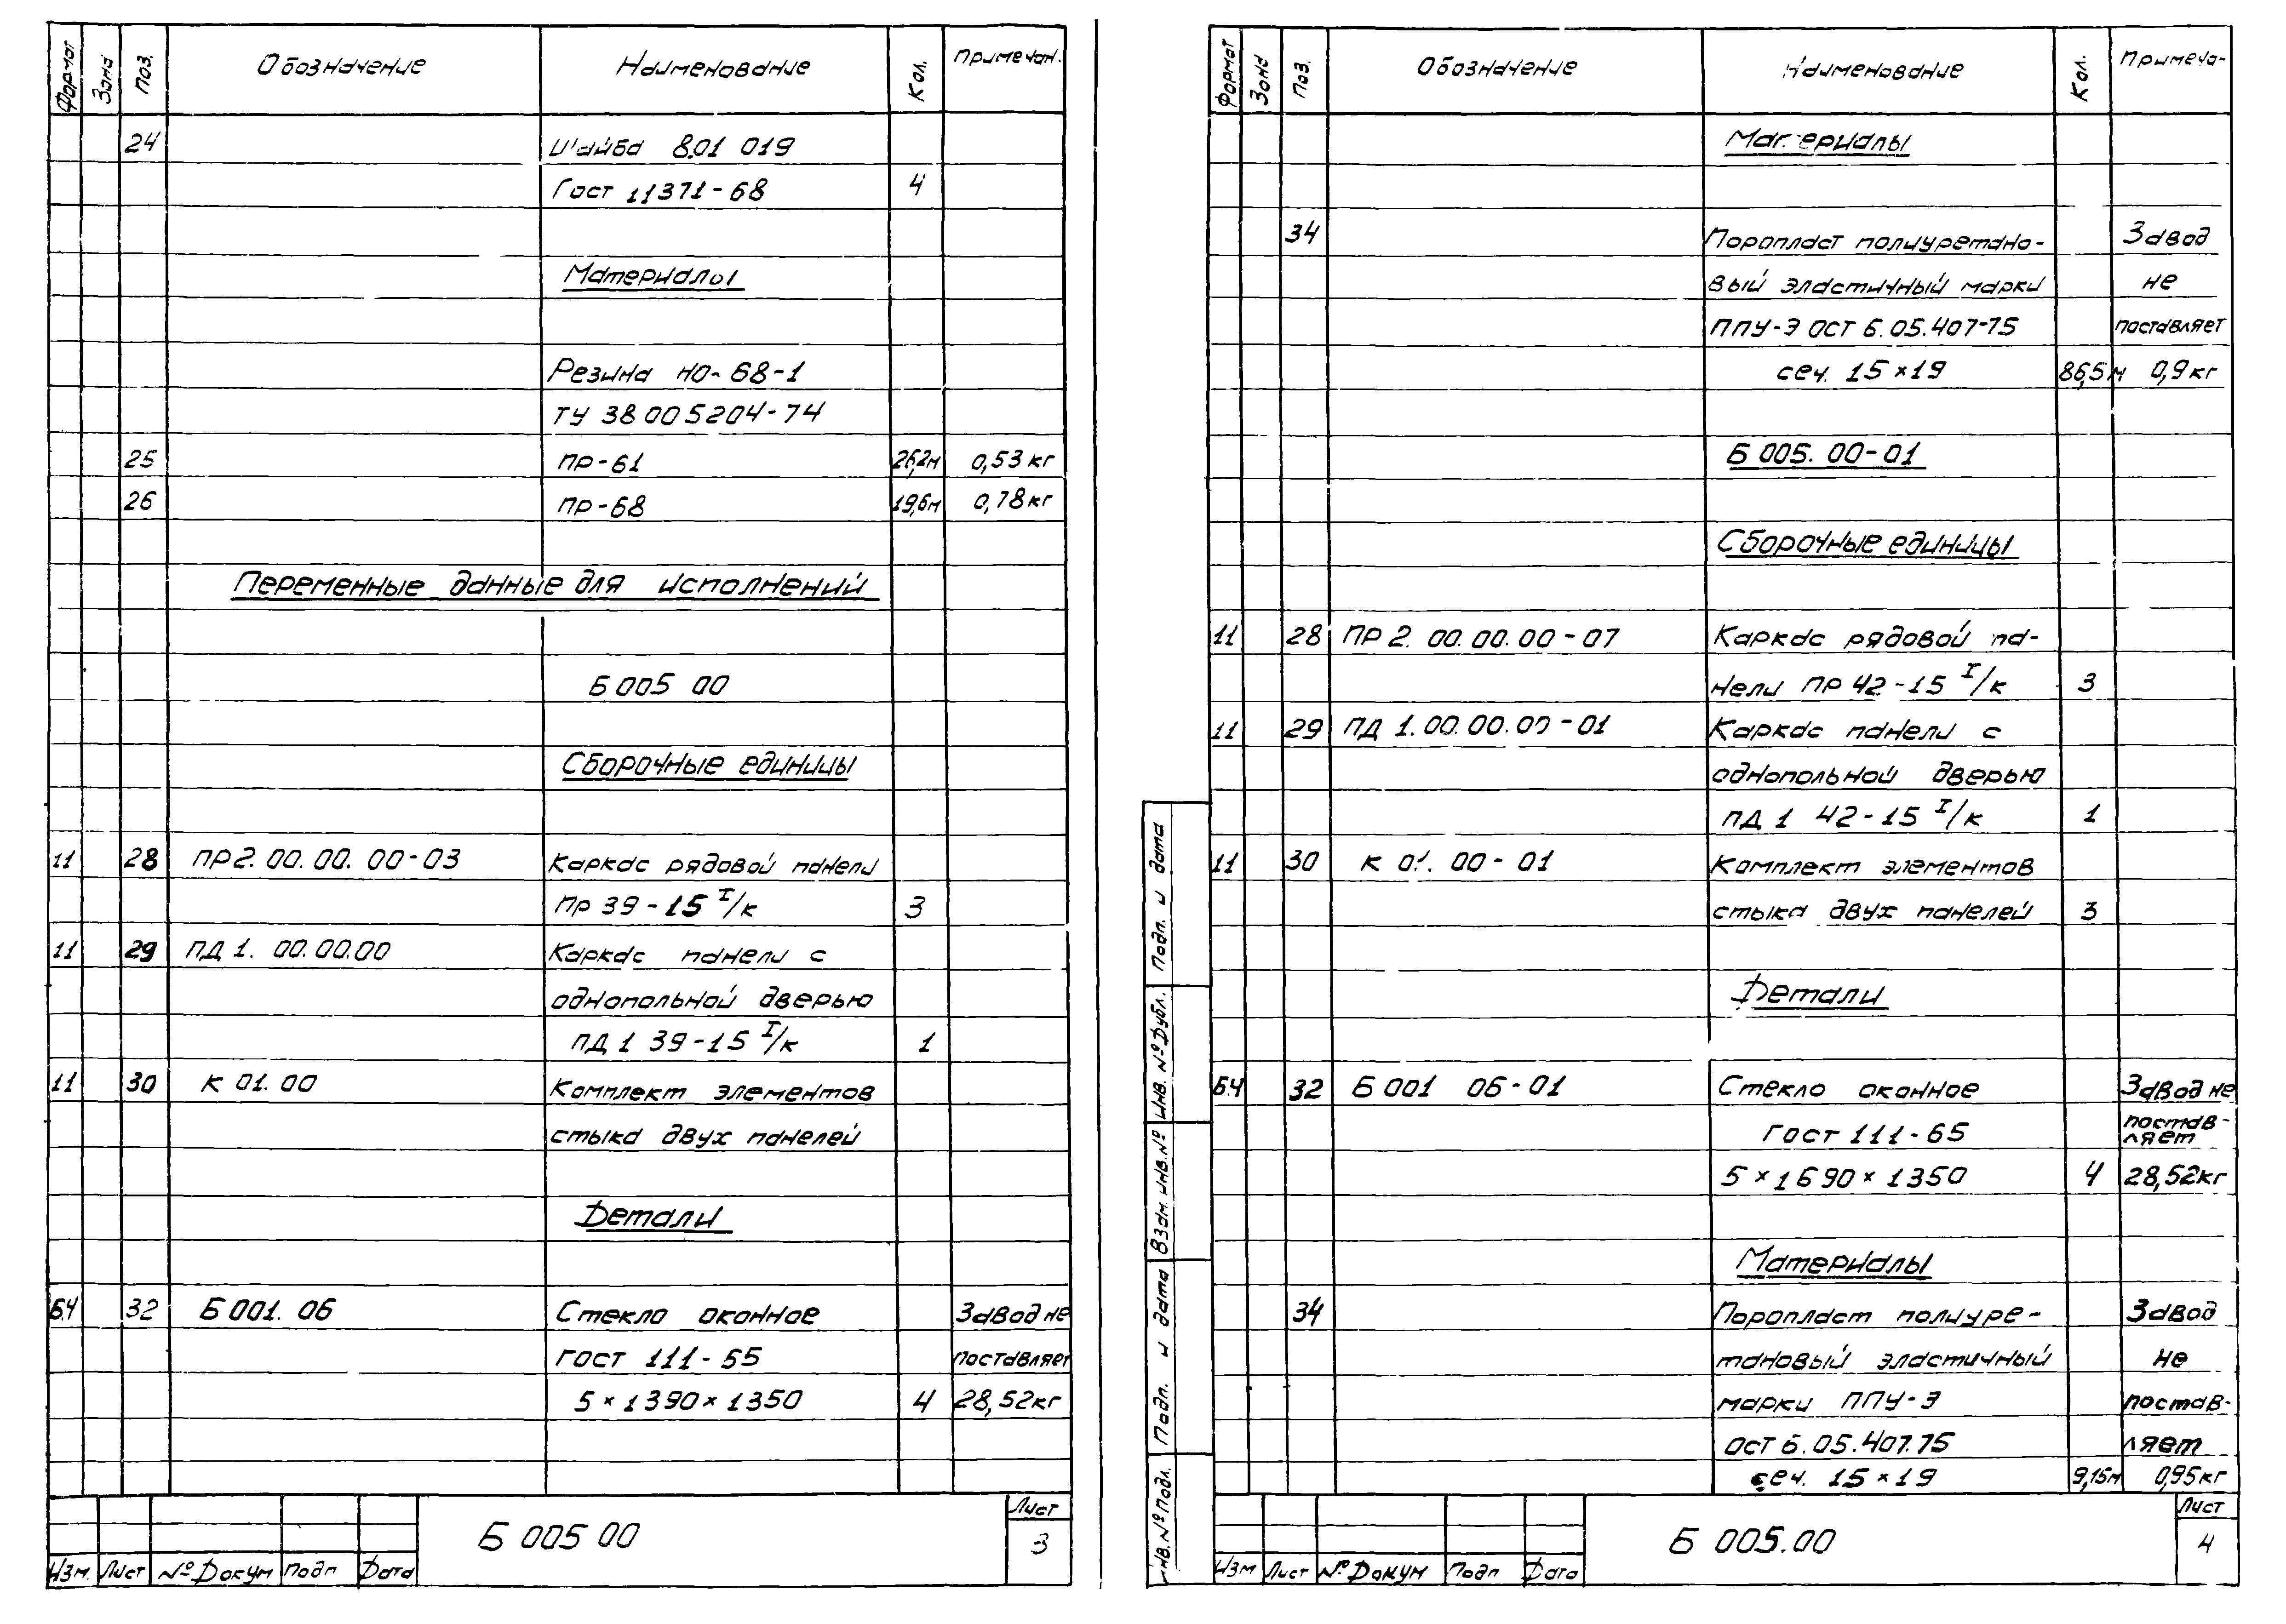 Формат Зона Поз. Обозначение Наименование Кол. Примечан.
24 Шайба 8.01 019
Гост 11371-68 4
Материалы
Резина НО-68-1
ТУ 38 005204-74
25 ПР-61 26,2м 0,53 кг
26 ПР-68 19,6м 0,78 кг
Переменные данные для исполнений
Б 005 00
Сборочные единицы
11 28 ПР2. 00. 00. 00-03 Каркас рядовой панели
ПР 39-15 I/к 3
11 29 ПД 1. 00.00.00 Каркас панели с
однопольной дверью
ПД 1 39-15 I/к 1
11 30 К 01. 00 Комплект элементов
стыка двух панелей
Детали
БЧ 32 Б 001. 06 Стекло оконное Завод не
Гост 111-65 поставляет
5×1390×1350 4 28,52кг
Изм. Лист №Докум Подп Дата
Б 005 00
Лист
3
Формат Зона Поз. Обозначение Наименование Кол. Примеча-
Материалы
34 Поропласт полиуретано- Завод
вый эластичный марки не
ППУ-Э ОСТ 6.05.407-75 поставляет
сеч. 15×19 86,5м 0,9 кг
Б 005. 00-01
Сборочные единицы
11 28 ПР 2. 00. 00. 00-07 Каркас рядовой па-
нели ПР 42-15 I/к 3
11 29 ПД 1. 00. 00. 00-01 Каркас панели с
однопольной дверью
ПД 1 42-15 I/к 1
11 30 К 01. 00-01 Комплект элементов
стыка двух панелей 3
Детали
БЧ 32 Б 001 06-01 Стекло оконное Завод не
Гост 111-65 постав-
ляет
5×1690×1350 4 28,52кг
Материалы
34 Поропласт полиуре- Завод
тановый эластичный не
марки ППУ-Э постав-
ОСТ 6.05.407.75 ляет
сеч. 15×19 9,15м 0,95кг
Подп. и дата
Инв. №Дубл.
Взам. инв.№
Подп. и дата
Инв.№Подл.
Изм Лист №Докум Подп Дата
Б 005.00
Лист
4